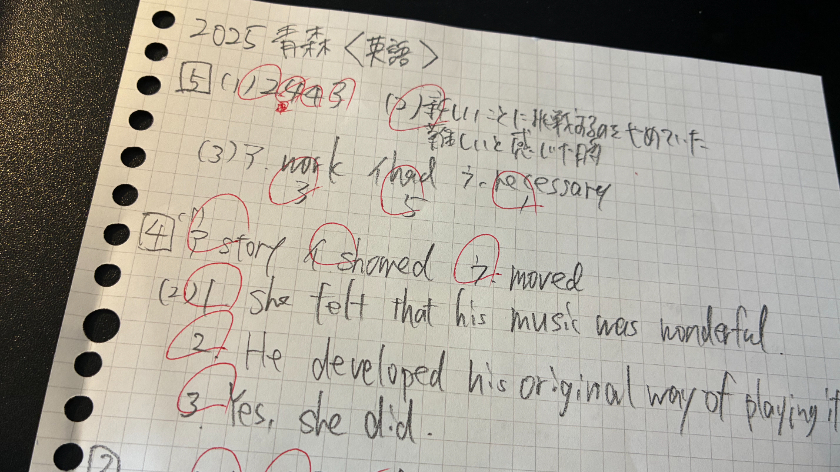 2025 青森〈英語〉
5 (1) 2 4 4 3 (2) 新しいことに挑戦するのをためていた
難しいと感じた時
(3) ア. work イ had ウ. necessary
3 5 4
4 (1) ア story イ showed ウ. moved
(2) 1. she felt that his music was wonderful.
2. He developed his original way of playing it
3. Yes, she did.
2